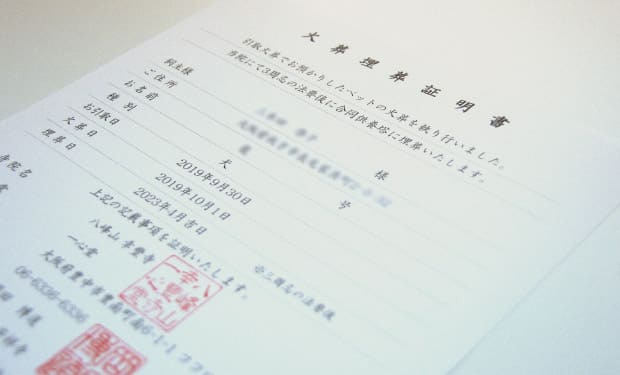 火葬埋葬証明書
引取火葬でお預かりしたペットの火葬を執り行いました。
寺院にて3周忌の法要後に合同供養塔に埋葬いたします。
飼主様 様
ご住所
お名前 号
種別 犬
お引取日 2019年9月30日
火葬日 2019年10月1日
埋葬日 2023年4月吉日 ※三周忌の法要後
上記の記載事項を証明いたします。
寺院名 八峰山
一心堂
大阪府豊中市豊南町南6-1-1
06-6336-6336